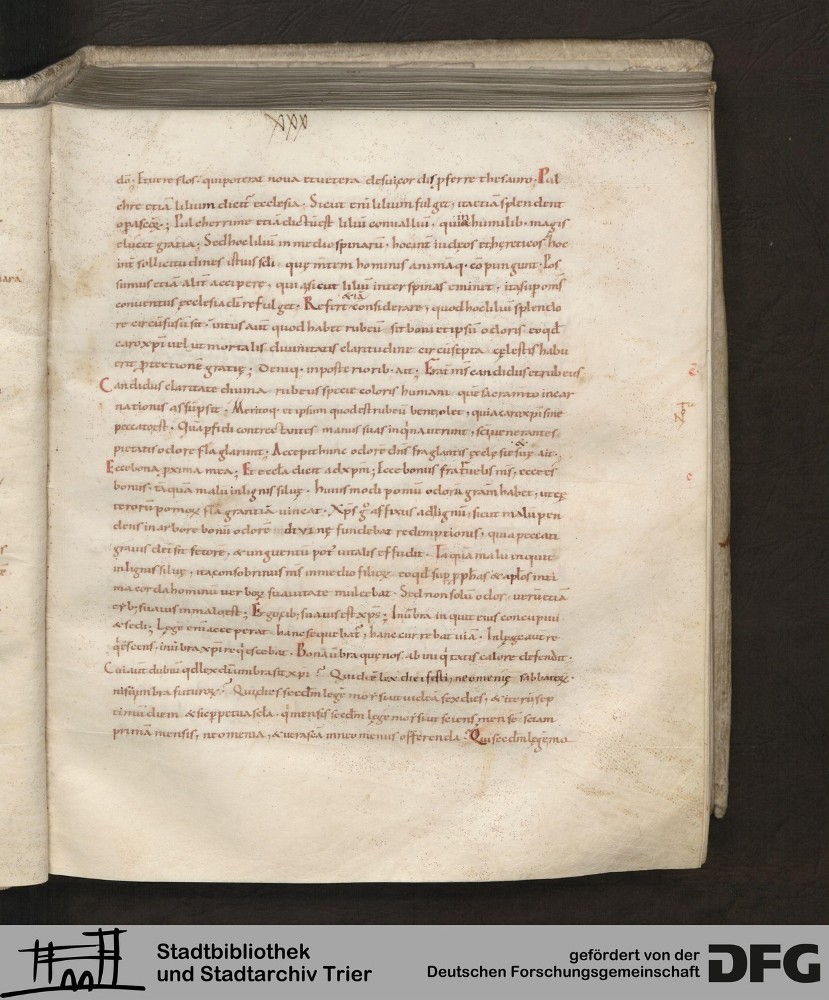 xxx
dō · Et uere flos · qui poterat noua et uetera de sui cordis pferre thesauro · Pul
chre etiā lilium dicit ecclesia · Sicut enī lilium fulget, ita etiā splendent
opa scōꝝ; Pulcherrime etiā dictū est liliū conualliū, quia in humilib; magis
elucet gratia; Sed hoc liliū in medio spinarū, hoc int iudeos et hereticos, hoc
int sollicitudines istius scli · que mtem hominis animāq · cōpungunt · Pos
sumus etiā alit accipere, quia sicut liliū inter spinas eminet, ita sup oms
conuentus ęcclesia di refulget · Refert etiā considerare, quod hoc liliū splendo
re circūfusū sit · intus aut quod habet rubeū sit boni et ipsiū odoris eo qd
caro xpi uel ut mortalis diuinitatis claritudine circūsepta cęlestis habu
erit ptectionē gratię; Deniq · in posteriorib · ait · Frat ms candidus et rubeus
Candidus claritate diuina rubeus specie coloris humani que sacramto incar
nationis assūpsit · Meritoq · et ipsum quod est rubeū bene olet, quia caro xpi sine
peccato est · Qua pfidi contrectantes manus suas inqnauerunt, sci uenerantes
pietatis odore flaglarunt; Accepit hunc odorē dns fraglantis ęcclesię suę & ait ·
Ecce bona pxima mea; Et eccla dicit ad xpm; Ecce bonus fratruelis ms, ecce es
bonus · tāquam malū in lignis siluę · Huius modi pomū odorū gratiam habet, ut cę
terorū pomoꝝ flagrantiā uincat · Xps g affixus ad lignū, sicut malū pen
dens in arbore bonū odorē diuinę fundebat redemptionis, quia peccati
grauis detsit fetore, & unguentū pot uitalis effudit · Taquā malū inquit
in lignis siluę, ita consobrinus ms in medio filioꝝ eo qd sup pphas & aplos inti
ma corda hominū uerboꝝ suauitate mulcebat · Sed non solū odor uerū etiā
cyb; suauis in malo est; Ergo cib; suauis est xps; In ūbra inquit eius concupiui
& sedi; Lege eni acceperat hanc sequebat, hanc currebat uiā · In lege aut re
qescens, in ūbra xpi reqescebat · Bona ūbra que nos ab iniqtatis calore defendit ·
Cui aut dubiū qd lex dni umbra sit xpi? Qui dies lex diei festi, neomenię sabbatoꝝ ·
nisi umbra futuroꝝ? Qui dies secdm lege mor sicut uidea sex dies, & iteru sep
timū diem & sic ppetua scla · q mensis secdm lege mor sicut sciens mense sciam
primā mensis, neomenia, & uerascā in neomeniis offerenda · Qui secdm lęgē mo